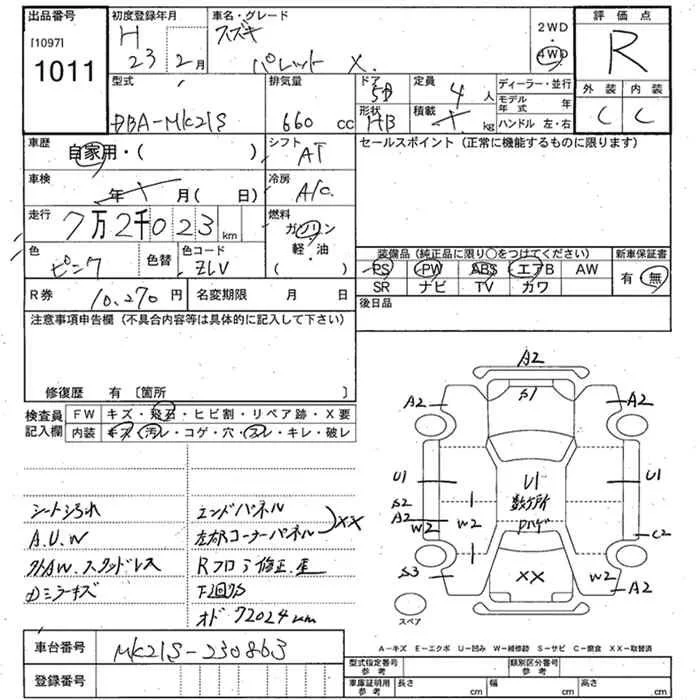 出品番号
[1097]
1011
初度登録年月
H 23 2月
車名・グレード
スズキ
パレット X
2WD
・
4WD
評価点
R
外装 内装
C C
型式
DBA-MK21S
排気量
660 cc
ドア
5D
形状
HB
定員
4人
積載
kg
ディーラー・並行
モデル年式 年
ハンドル 左・右
車歴
自家用・( )
シフト
AT
セールスポイント (正常に機能するものに限ります)
車検
年 月( 日)
冷房
A/C
走行
7万2千023km
燃料
ガソリン
軽・油
( )
色
ピンク
色替
色コード
ZLV
装備品 (純正品に限り〇をつけてください)
新車保証書
PS PW ABS エアB AW
SR ナビ TV カワ
有 無
R券 10,270円
名変期限 月 日
後日品
注意事項申告欄 (不具合内容等は具体的に記入して下さい)
修復歴 有 〔箇所 〕
検査員記入欄
FW キズ・飛石・ヒビ割・リペア跡・X要
内装 キズ・汚レ・コゲ・穴・スレ・キレ・破レ
シート汚れ
A.U.W
外AW.スタッドレス
ミラーキズ
エンドパネル
左右Rコーナーパネル
XX
Rフロア修正.歪
下回りS
オド 72024km
A2
S1
A2
A2
U1
S2
A2
W2
W2
U1
数ケ所
Pハゲ
U1
C2
S3
XX
W2
A2
スペア
A-キズ E-エクボ U-凹み W-補修跡 S-サビ C-腐食 XX-取替済
車台番号
MK21S-230863
登録番号
型式指定番号
参考
類別区分番号
参考
車庫証明用
参考
長さ cm
幅 cm
高さ cm